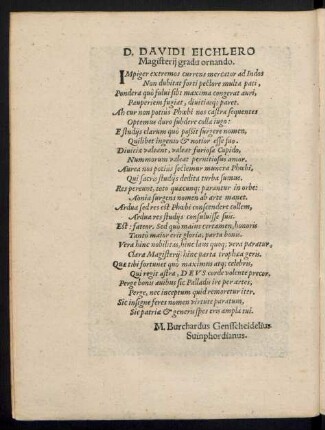 D. DAVIDI EICHLERO
Magisterij gradu ornando.
IMpiger extremos currens mercator ad Indos
Non dubitat forti pectore multa pati,
Pondera quò fului sibi maxima congerat auri,
Pauperiem fugiat, diuitiasq; paret.
At cur non potius Phœbi nos castra sequentes
Optemus duro subdere colla iugo:
E studijs clarum quò possit surgere nomen,
Quilibet ingenio & notior esse suo.
Diuitis valeant, valeat furiosa Cupido,
Nummorum valeat pernitiosus amor.
Aurea nos potius sectemur munera Phœbi,
Qui sacris studijs dedita turba sumus.
Res pereunt, toto quæcunq; parantur in orbe:
Aonia surgens nomen ab arte manet.
Ardua sed res est Phœbi conscendere collem,
Ardua res studijs consuluisse suis.
Est: fateor. Sed quò maius certamen, honoris
Tantò maior erit gloria, parta boni.
Vera hinc nobilitas, hinc laus quoq; vera paratur,
Clara Magisterij hinc parta trophæa geris.
Quæ tibi fortunet quò maximus arq; celebris,
Qui regit astra, DEVS corde valente precor,
Perge bonis auibus sic Palladis ire per artes,
Perge, nec inceptum quid remoretur iter,
Sic insigne feres nomen virtute paratum,
Sic patriæ & generis spes eris ampla tui.
M. Burchardus Gensscheidelius
Suinphordianus.